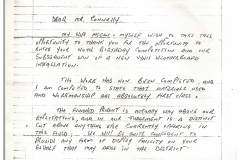 DEAR MR CONNOLLY
MY WIFE MEGAN & MYSELF WISH TO TAKE THIS
OPPORTUNITY TO THANK YOU FOR THE OPPORTUNITY TO
ENTER YOUR HOME BIRTHDAY COMPETITION AND OUR
SUBSEQUENT WIN OF A NEW
INSTALLATION.
THE WORK HAS NOW BEEN COMPLETED, AND
I AM COMPELLED TO STATE THAT MATERIALS USED
AND WORKMANSHIP ARE ABSOLUTELY FIRST CLASS.
THE FINISHED PRODUCT IS ACTUALLY WAY ABOVE OUR
EXPECTATIONS, AND IN OUR JUDGEMENT IS A DISTINCT
CUT ABOVE ANYTHING ELSE CURRENTLY OPERATING IN
THIS FIELD. WE WILL BE QUITE CONFIDENT TO
PROVIDE ANY FORM OF DISPLAY FACILITY ON YOUR
BEHALF THAT MAY ARISE IN THIS DISTRICT